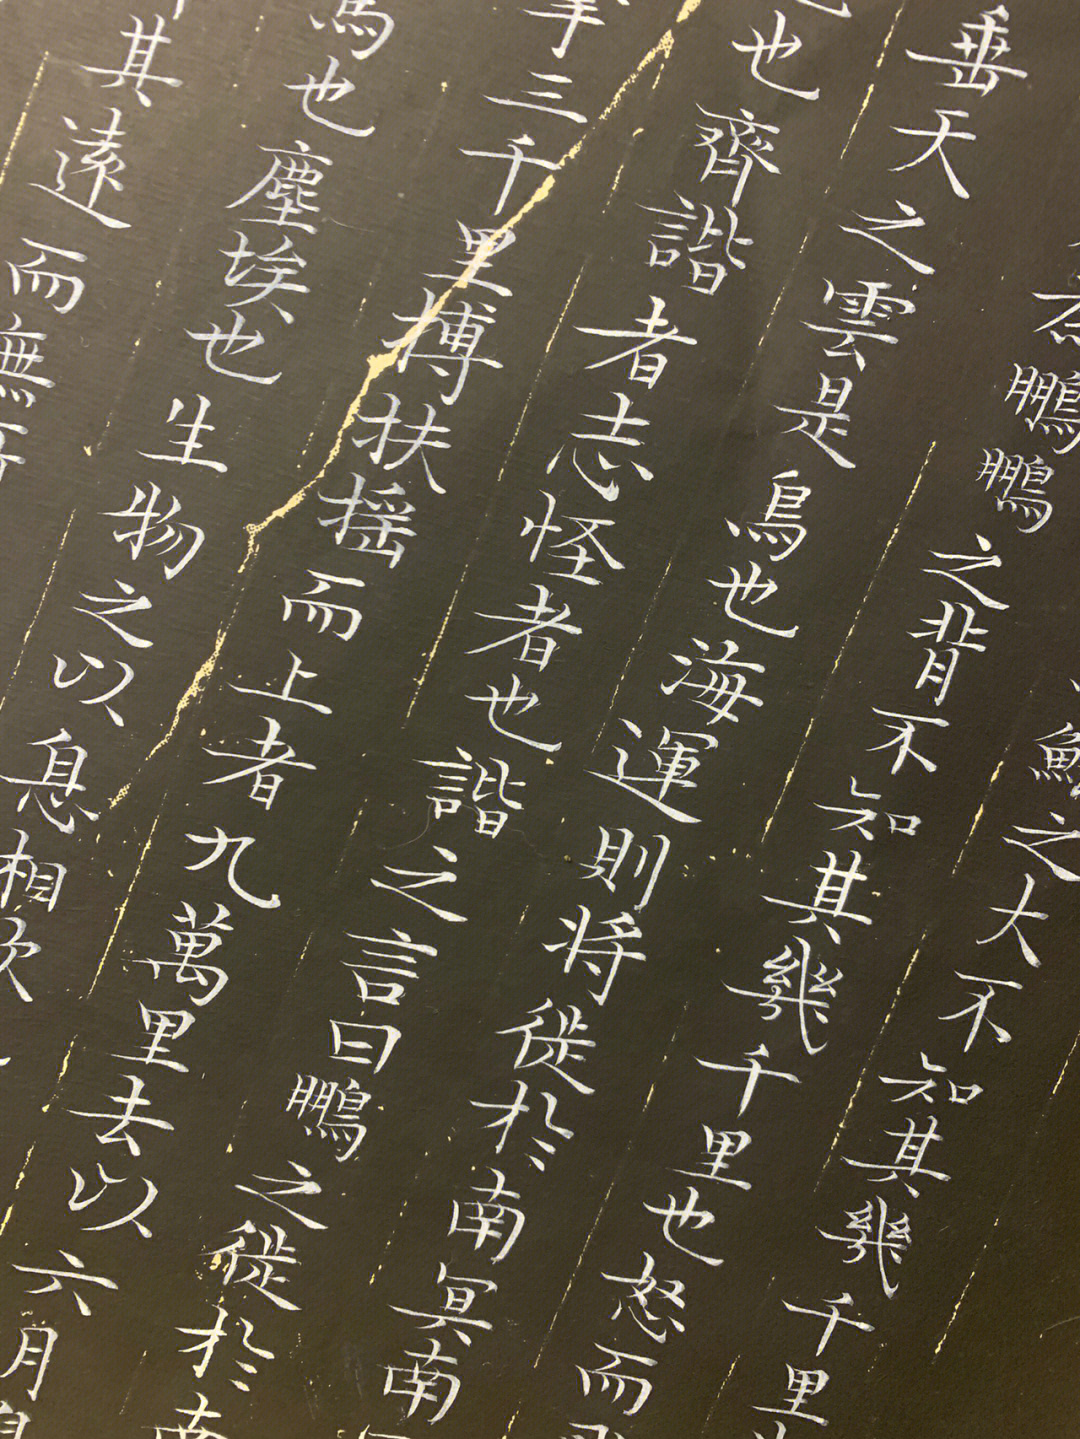 鯤之大不知其幾千里
為鵬鵬之背不知其幾千里也怒而
垂天之雲是鳥也海運則将徙於南冥南
也齊諧者志怪者也諧之言曰鵬之徙於南
三千里搏扶揺而上者九萬里去以六月
馬也塵埃也生物之以息相吹
其遠而無所